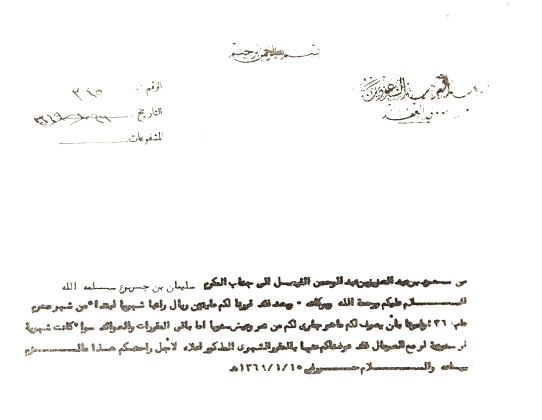 بسم الله الرحمن الرحيم
المملكة العربية السعودية
ولي العهد
الرقم : ٣٩٥
التاريخ :
المشفوعات
من سعود بن عبد العزيز بن عبد الرحمن الفيصل الى جناب المكرم سليمان بن جربوع سلمه الله
السلام عليكم ورحمة الله وبركاته ٠ وبعد فقد قررنا لكم مايتين ريال راتبا شهريا ابتداء من شهر محرم
وامرنا بأن يصرف لكم ما هو جاري لكم من اما باقي المقررات والعوائد سواء كانت شهرية
او سنوية او مع العمال فقد عوضناكم عنها بالمقرر الشهري المذكور اعلاه لاجل راحتكم هذا ما لـــزم
بيانه والســـــلام حــــــرر في ١٣٦٩/١/١٥هـ